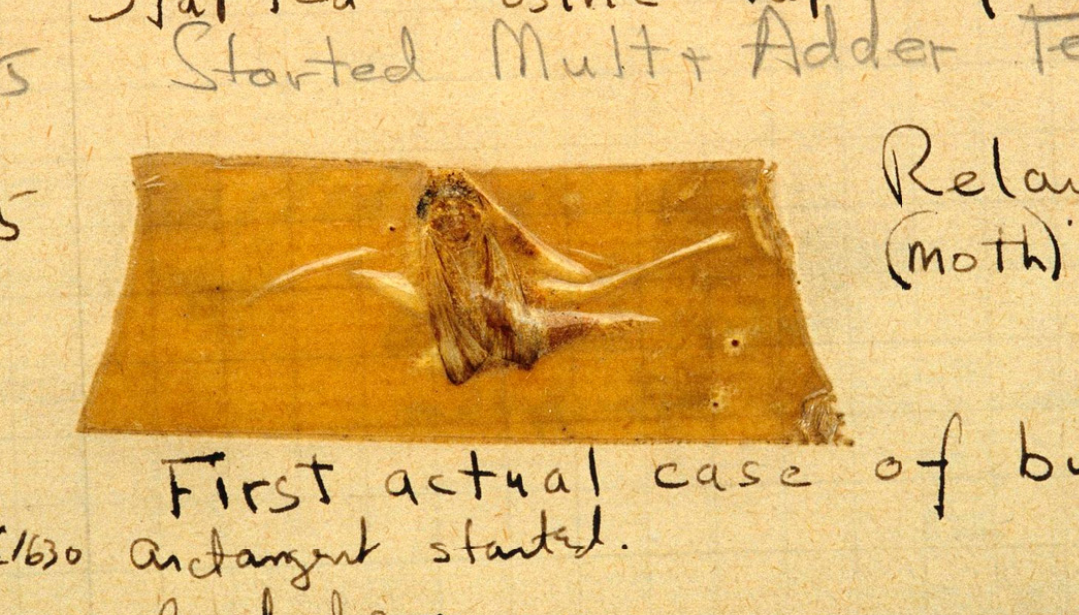 Started
5 Started Mult+ Adder Te
5 Relay
(moth)
First actual case of bu
1630 arctangent started.